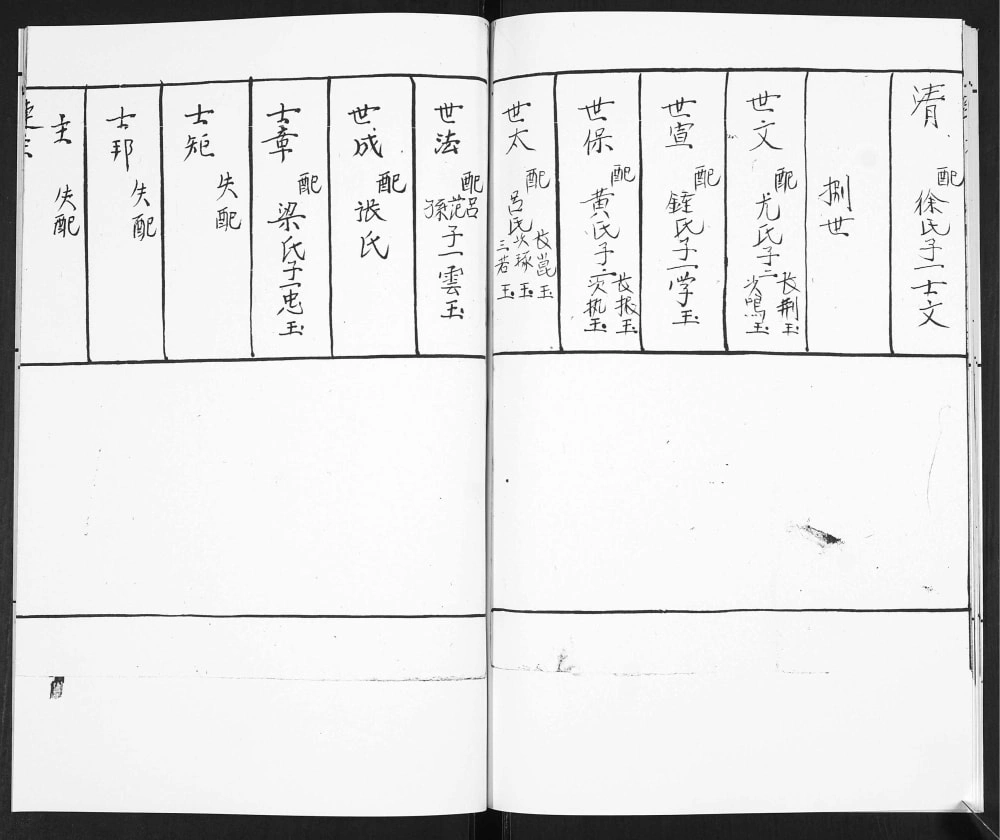 清 配徐氏子一士文
捌世
世文 配尤氏子二长荆玉次鳴玉
世宣 配鍾氏子一学玉
世保 配黄氏子二长振玉次执玉
世太 配吕氏长崑玉次琢玉三若玉
世法 配吕范孫子一雲玉
世成 配張氏
士章 配梁氏子一忠玉
士矩 失配
士邦 失配
士 失配